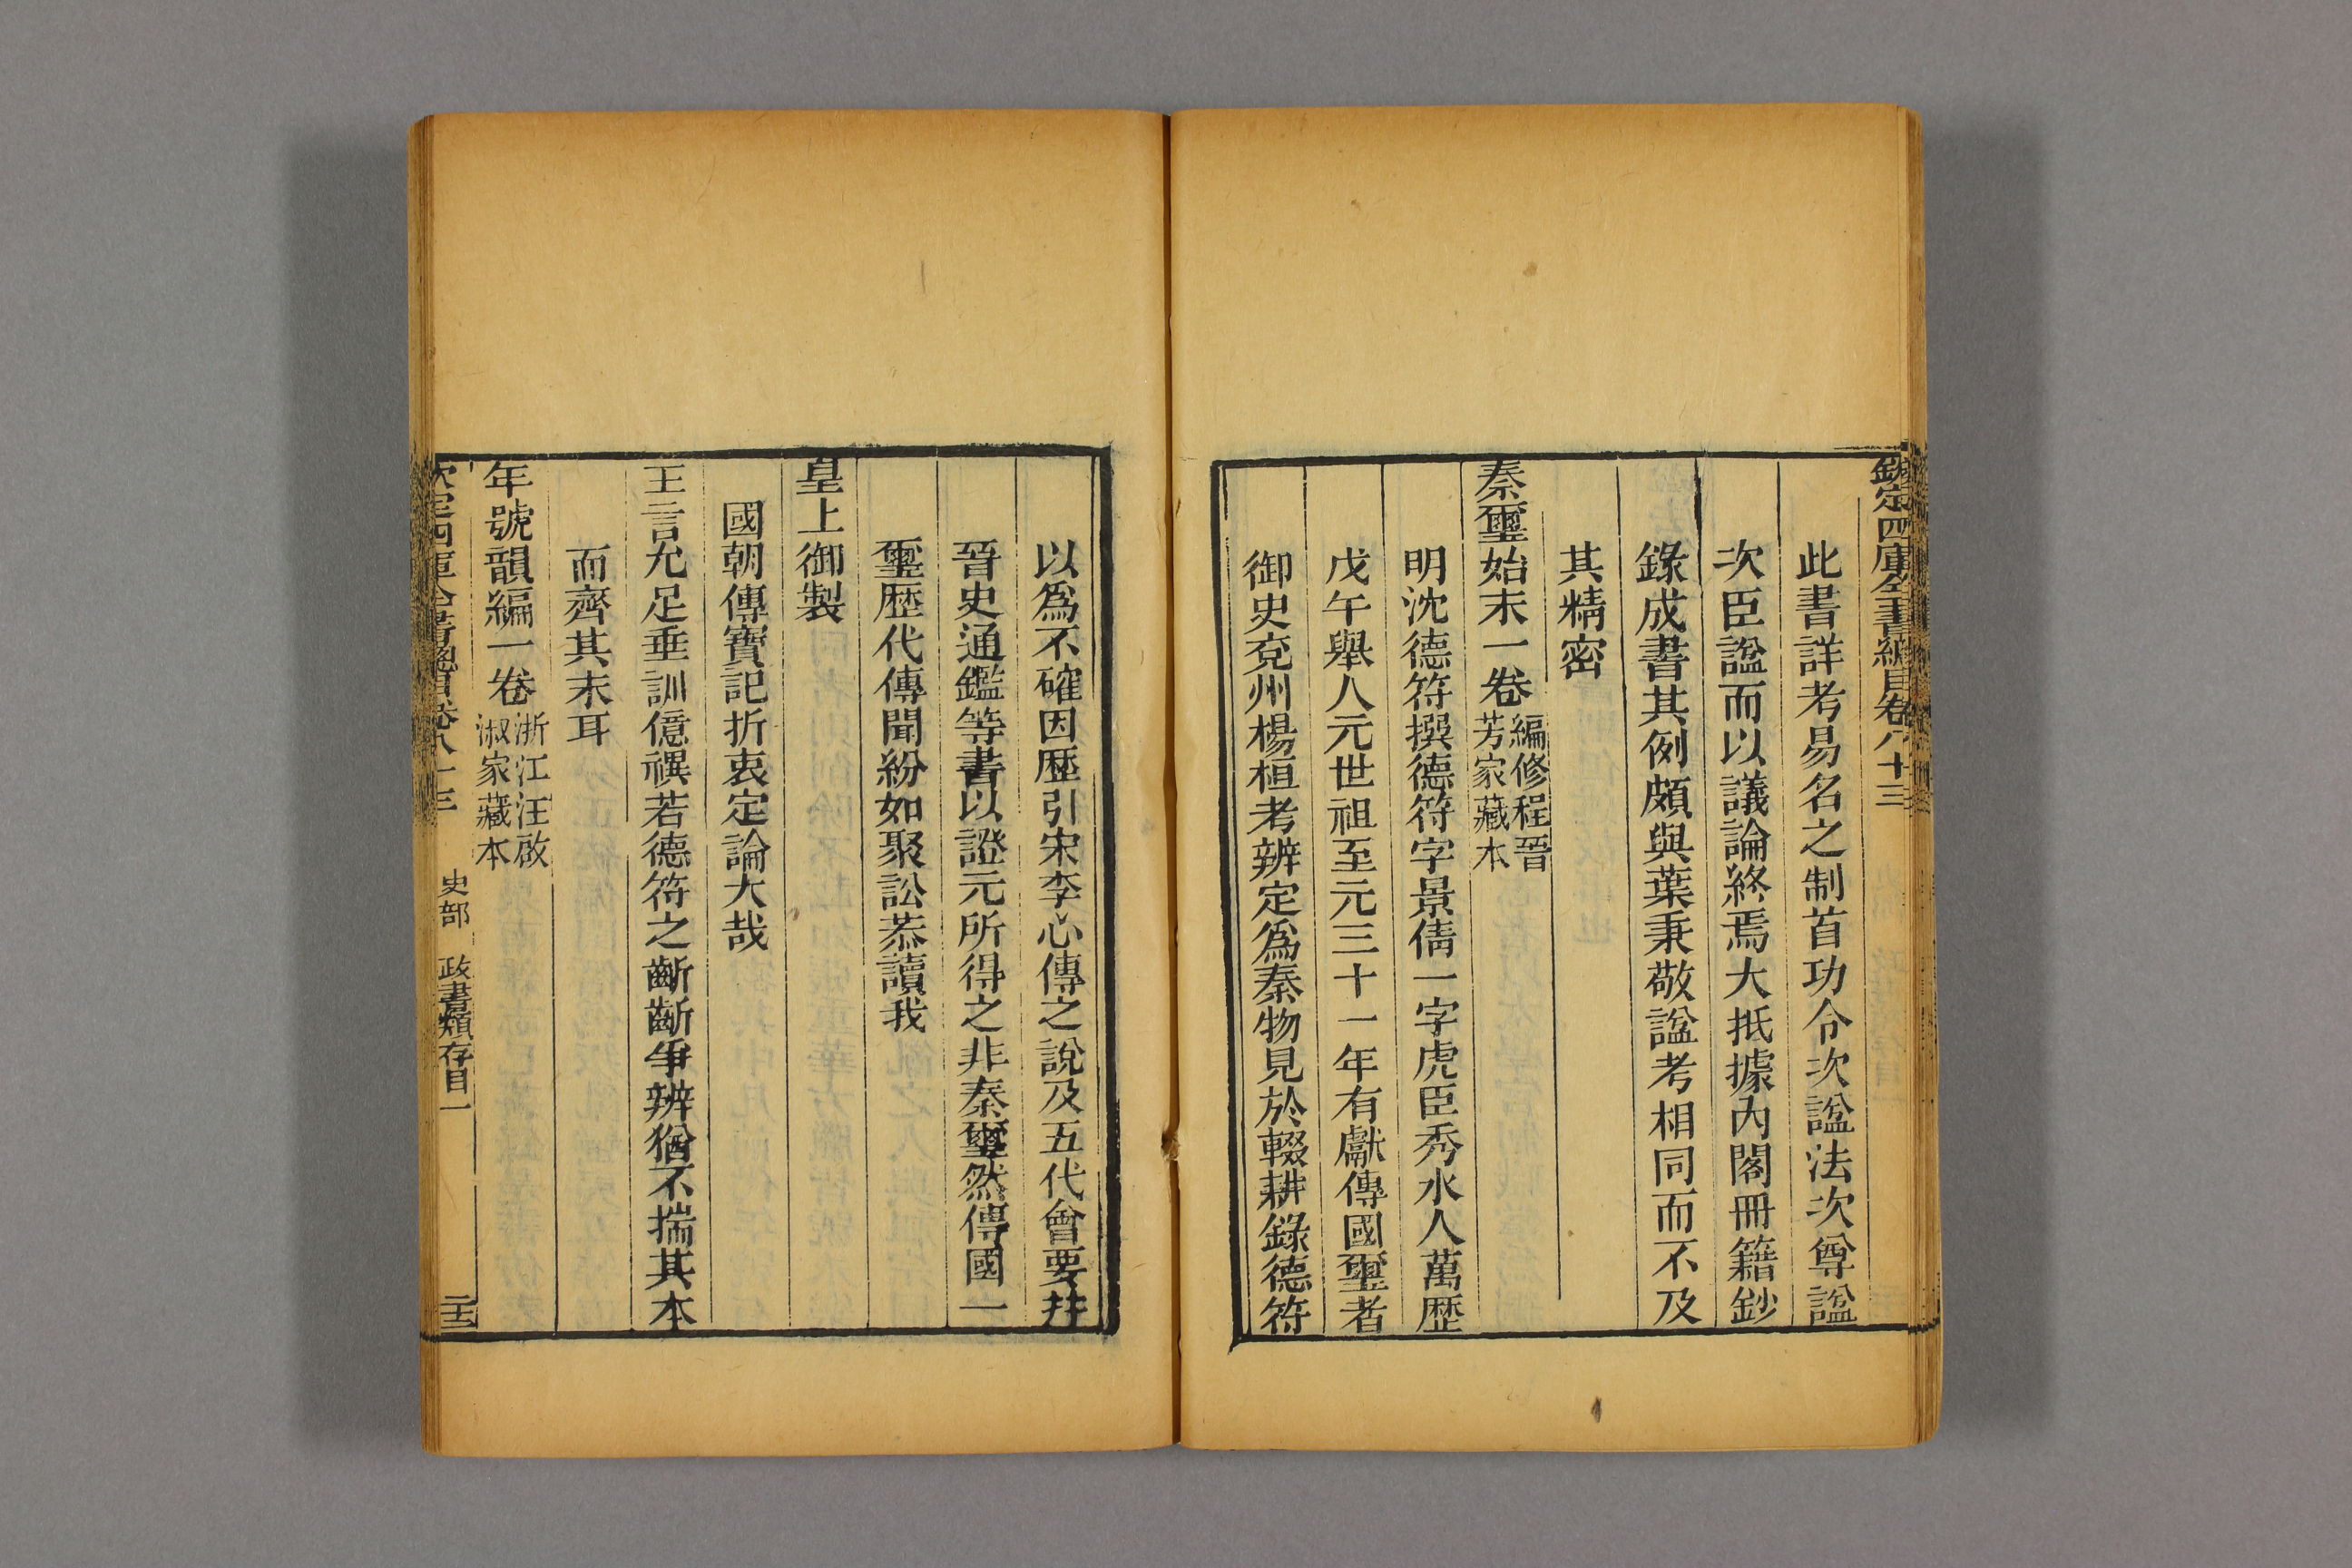 欽定四庫全書總目卷八十三
此書詳考易名之制首功令次諡法次尊諡
次臣諡而以議論終焉大抵據內閣冊籍鈔
錄成書其例頗與葉秉敬諡考相同而不及
其精密
秦璽始末一卷編修程晉
芳家藏本
明沈德符撰德符字景倩一字虎臣秀水人萬歷
戊午舉人元世祖至元三十一年有獻傳國璽者
御史兗州楊桓考辨定爲秦物見於輟耕錄德符
以爲不確因歷引宋李心傳之說及五代會要幷
晉史通鑑等書以證元所得之非秦璽然傳國一
璽歷代傳聞紛如聚訟恭讀我
皇上御製
國朝傳寶記折衷定論大哉
王言允足垂訓億禩若德符之齗齗爭辨猶不揣其本
而齊其末耳
年號韻編一卷浙江汪啟
淑家藏本
欽定四庫全書總目卷八十三 史部 政書類存目一 二十三